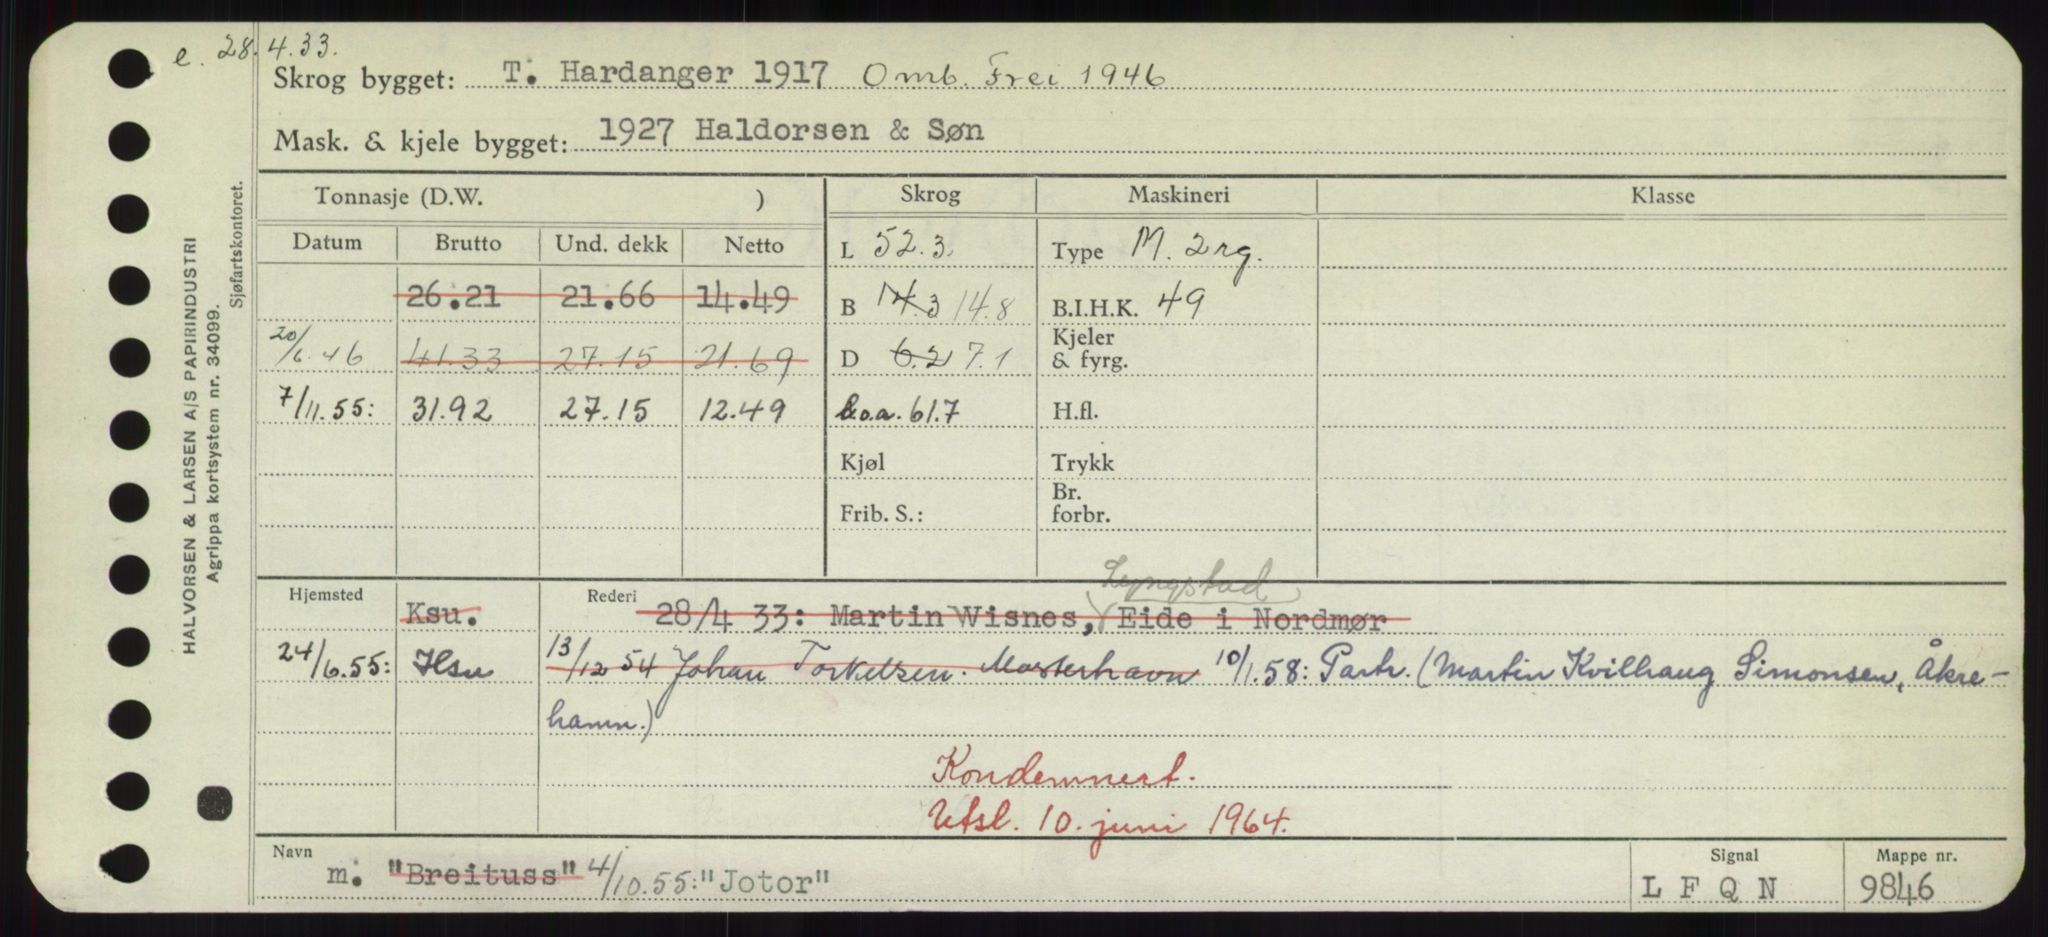 e. 28.4.33.
Skrog bygget: T. Hardanger 1917 Omb. Frei 1946
Mask. & kjele bygget: 1927 Haldorsen & Søn
Tonnasje (D.W. ) Skrog Maskineri Klasse
Datum Brutto Und. dekk Netto L 52.3. Type M. 2rg.
26.21 21.66 14.49 B 14.3 14.8 B.I.H.K. 49
20/6.46 41.33 27.15 21.69 D 6.2 7.1 Kjeler & fyrg.
7/11.55: 31.92 27.15 12.49 L.o.a. 61.7 H.fl.
Kjøl Trykk
Frib. S.: Br. forbr.
Lyngstad
Hjemsted Ksu. Rederi 28/4 33: Martin Wisnes, Eide i Nordmør
24/6.55: Hsu 13/12 54 Johan Torkelsen. Mosterhavn 10/1.58: Partr. (Martin Kvilhaug Simonsen, Åkre-
hamn.)
Kondemnert.
Utsl. 10. juni 1964.
Navn m. "Breituss" 4/10.55: "Jotor" Signal L F Q N Mappe nr. 9846
HALVORSEN & LARSEN A/S PAPIRINDUSTRI
Agrippa kortsystem nr. 34099.
Sjøfartskontoret.